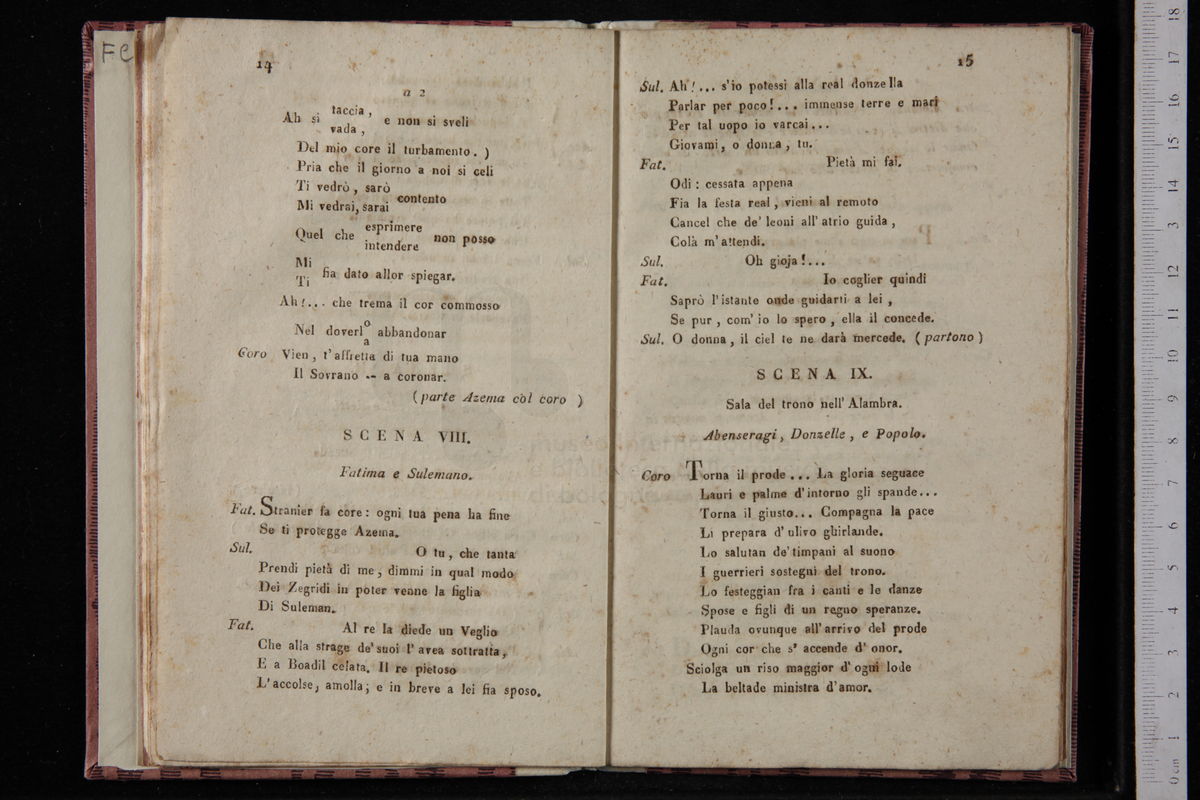 FC
14
a 2
Ah si taccia,
vada, e non si sveli
Del mio core il turbamento. )
Pria che il giorno a noi si celi
Ti vedrò, sarò
Mi vedrai, sarai contento
Quel che esprimere
intendere non posso
Mi
Ti fia dato allor spiegar.
Ah!... che trema il cor commosso
Nel doverlo
a abbandonar
Coro Vien, t'affretta di tua mano
Il Sovrano -- a coronar.
(parte Azema col coro )
SCENA VIII.
Fatima e Sulemano.
Fat. Stranier fa core: ogni tua pena ha fine
Se ti protegge Azema.
Sul. O tu, che tanta
Prendi pietà di me, dimmi in qual modo
Dei Zegridi in poter venne la figlia
Di Suleman.
Fat. Al re la diede un Veglio
Che alla strage de'suoi l'avea sottratta,
E a Boadil celata. Il re pietoso
L'accolse, amolla; e in breve a lei fia sposo.
15
Sul. Ah!... s'io potessi alla real donzella
Parlar per poco!... immense terre e mari
Per tal uopo io varcai...
Giovami, o donna, tu.
Fat. Pietà mi fai.
Odi: cessata appena
Fia la festa real, vieni al remoto
Cancel che de' leoni all' atrio guida,
Colà m'attendi.
Sul. Oh gioja!...
Fat. Io coglier quindi
Saprò l'istante onde guidarti a lei,
Se pur, com' io lo spero, ella il concede.
Sul. O donna, il ciel te ne darà mercede. (partono)
SCENA IX.
Sala del trono nell' Alambra.
Abenseragi, Donzelle, e Popolo.
Coro Torna il prode... La gloria seguace
Lauri e palme d'intorno gli spande...
Torna il giusto... Compagna la pace
Li prepara d'ulivo ghirlande.
Lo salutan de'timpani al suono
I guerrieri sostegni del trono.
Lo festeggian fra i canti e le danze
Spose e figli di un regno speranze.
Plauda ovunque all'arrivo del prode
Ogni cor che s' accende d' onor.
Sciolga un riso maggior d'ogni lode
La beltade ministra d'amor.
0 cm 1 2 3 4 5 6 7 8 9 10 11 12 13 14 15 16 17 18